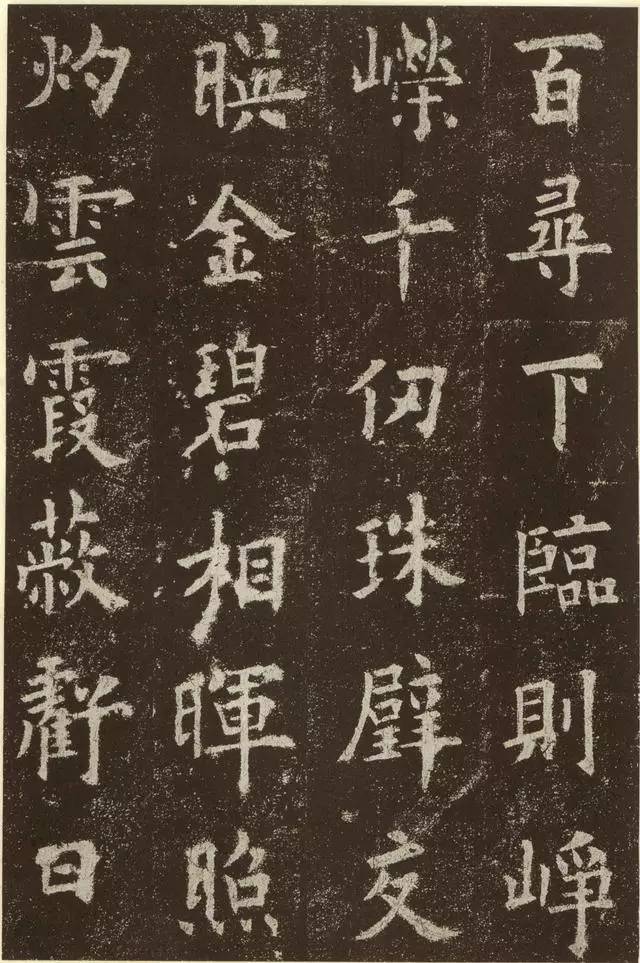 百尋下臨則崢
嶸千仞珠壁交
暎金碧相暉照
灼雲霞蔽虧日